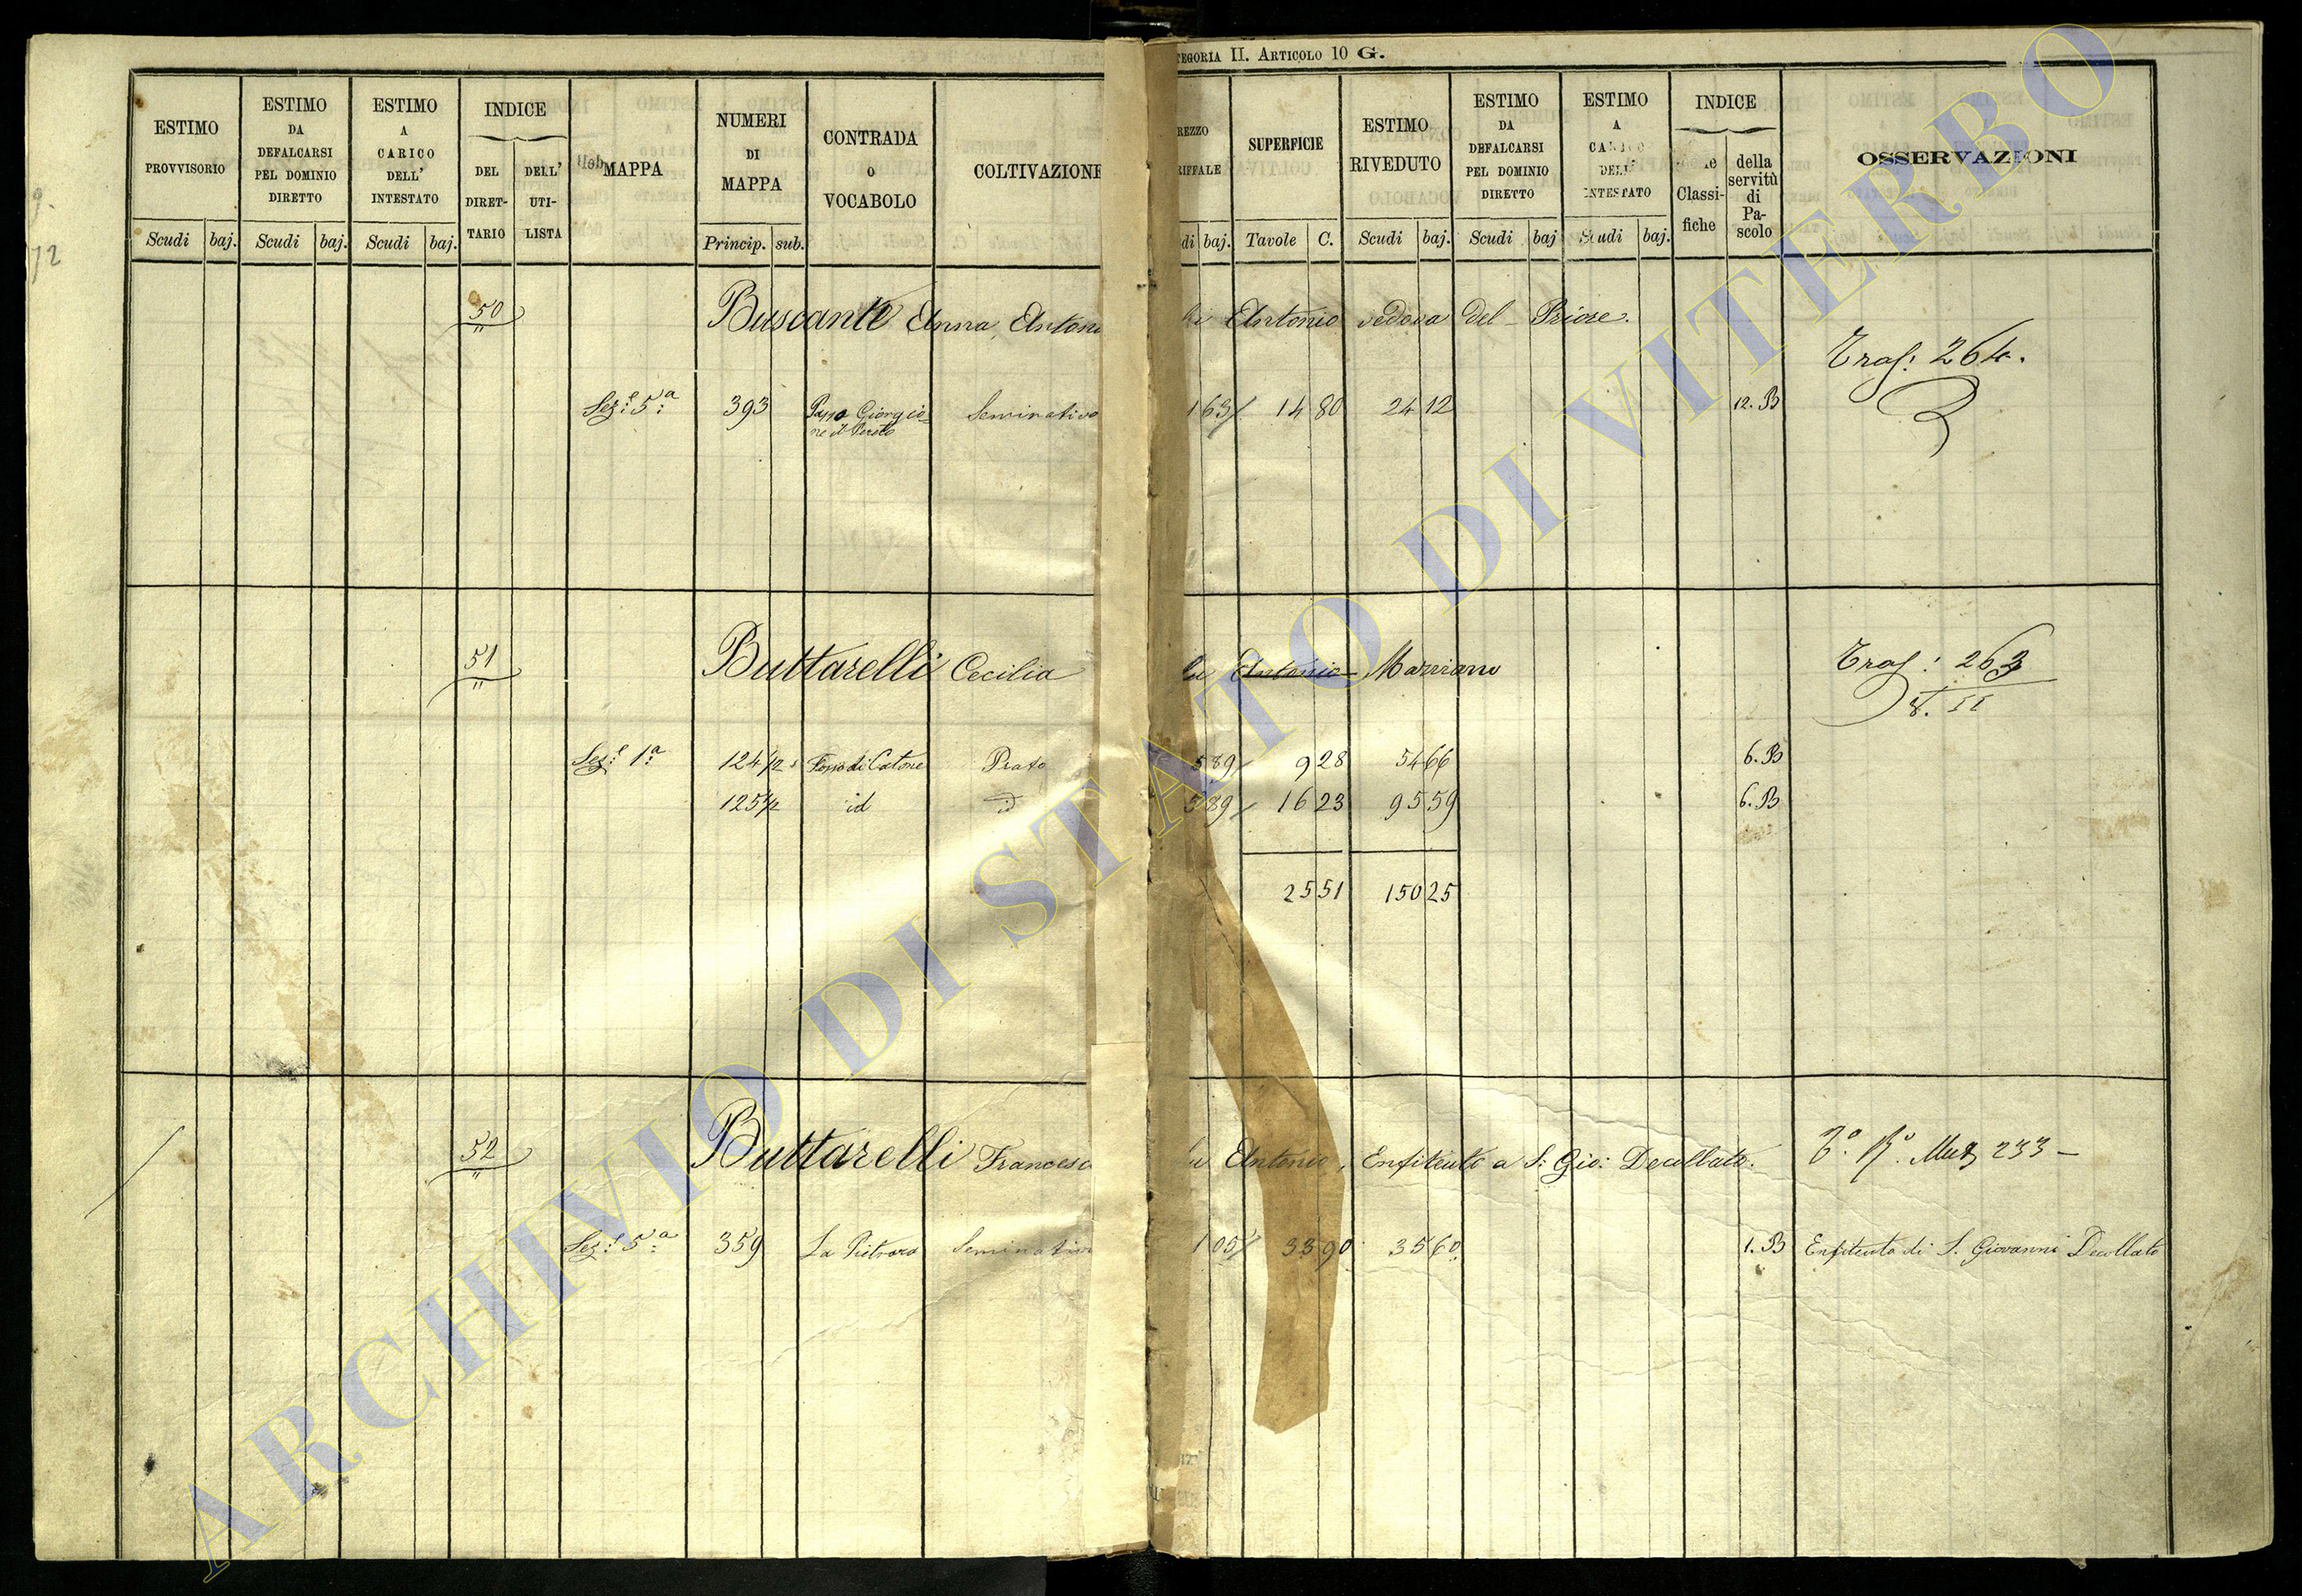 TEGORIA II. ARTICOLO 10 G.
ESTIMO PROVVISORIO
Scudi baj.
ESTIMO DA DEFALCARSI PEL DOMINIO DIRETTO
Scudi baj.
ESTIMO A CARICO DELL' INTESTATO
Scudi baj.
INDICE
DEL DIRET-TARIO
DELL' UTI-LISTA
MAPPA
NUMERI DI MAPPA
Princip. sub.
CONTRADA o VOCABOLO
COLTIVAZIONE
REZZO RIFFALE
di baj.
SUPERFICIE
Tavole C.
ESTIMO RIVEDUTO
Scudi baj.
ESTIMO DA DEFALCARSI PEL DOMINIO DIRETTO
Scudi baj
ESTIMO A DELL' INTESTATO
Scudi baj.
INDICE
le Classi-fiche
della servitù di Pa-scolo
OSSERVAZIONI
12
50 Buscante Anna, Antoni Antonio vedova del Priore.
Traf: 264.
Sez:e 5a: 393 Giorgio Seminativo 1 63 14 80 24 12 12. B
51 Buttarelli Cecilia Antonio Marziano
Traf: 263
Sez:e 1a: 124 1/2 Fosso di Catone Prato 5 89 9 28 54 66 6. B
125 1/2 id id 5 89 16 23 95 59 6. B
25 51 150 25
52 Buttarelli Francesc Antonio, Enfiteuta a S: Gio: Decollato.
233 –
Sez:e 5a: 359 La Pietrara Seminativo 1 05 33 90 35 60 1. B Enfiteuta di S. Giovanni Decollato
ARCHIVIO DI STATO DI VITERBO